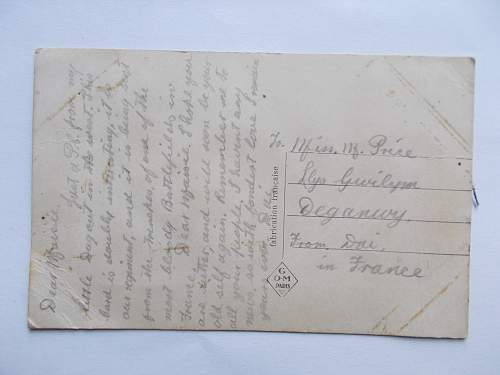 Dear Maisie. Just a P.C. from my
little Dug out in the west. This
Card is doubly interesting, it is
our regiment, and it is being sent
from the trenches, of one of the
most bloody Battlefields in
France. Dear Maisie, I hope you
are better, and will soon be your
old self again. Remember me to
all your people. I havent any
news, so with fondest love I remain
yours ever, Dai.
fabrication française
G
O·M
PARIS
To, Miss. M. Price
Llys Gwilym
Deganwy.
From Dai.
in France